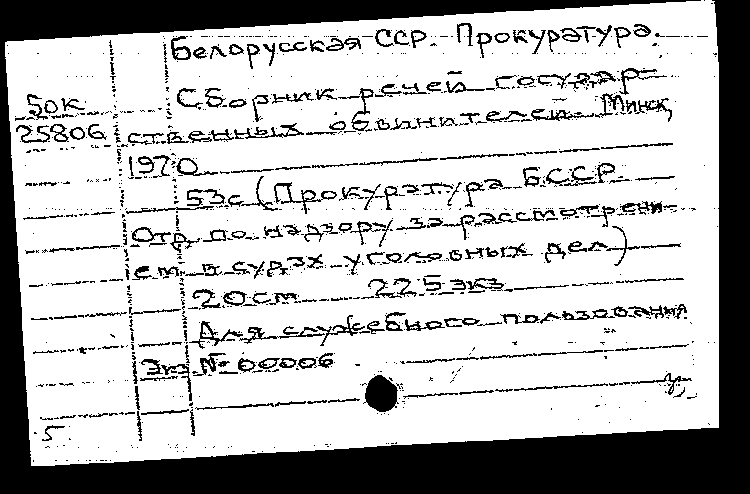 Белорусская ССР. Прокуратура.
50к Сборник речей государ-
25806 ственных обвинителей. Минск,
1970
53с (Прокуратура БССР.
Отд. по надзору за рассмотрени-
ем в судах уголовных дел)
20см 225 экз
Для служебного пользования
Экз № 00006
5